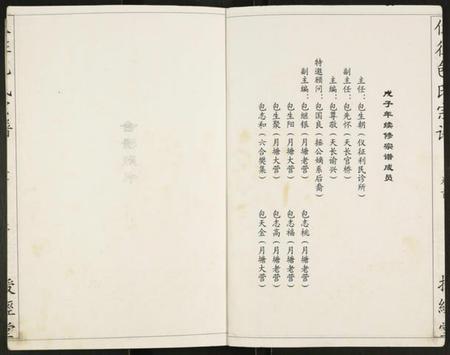 戊子年续修宗谱成员
主任：包生朝（仪征利民诊所）
副主任：包先怀（天长官桥）
主编：包尊敬（天长谕兴）
特邀顾问：包国良（拯公嫡系后裔）
副主编：包继银（月塘老营）
包志桃（月塘老营）
包生阳（月塘大营）
包志福（月塘老营）
包生聚（月塘大营）
包志高（月塘老营）
包志和（六合樊集）
包天金（月塘大营）
包氏宗谱
授经堂
授經堂